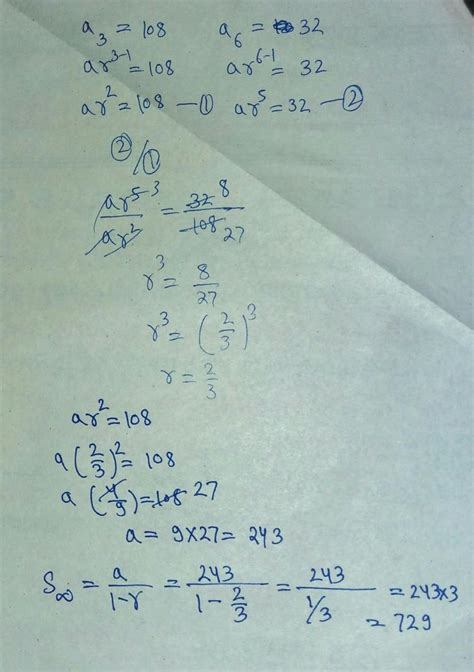 a₃ = 108    a₆ = 32
ar³⁻¹ = 108    ar⁶⁻¹ = 32
ar² = 108 — ①    ar⁵ = 32 — ②
②/①
ar⁵ ³/ar² = 32 8/108 27
r³ = 8/27
r³ = (2/3)³
r = 2/3
ar² = 108
a(2/3)² = 108
a(4/9) = 108 27
a = 9×27 = 243
S∞ = a/1-r = 243/1-2/3 = 243/1/3 = 243×3
= 729